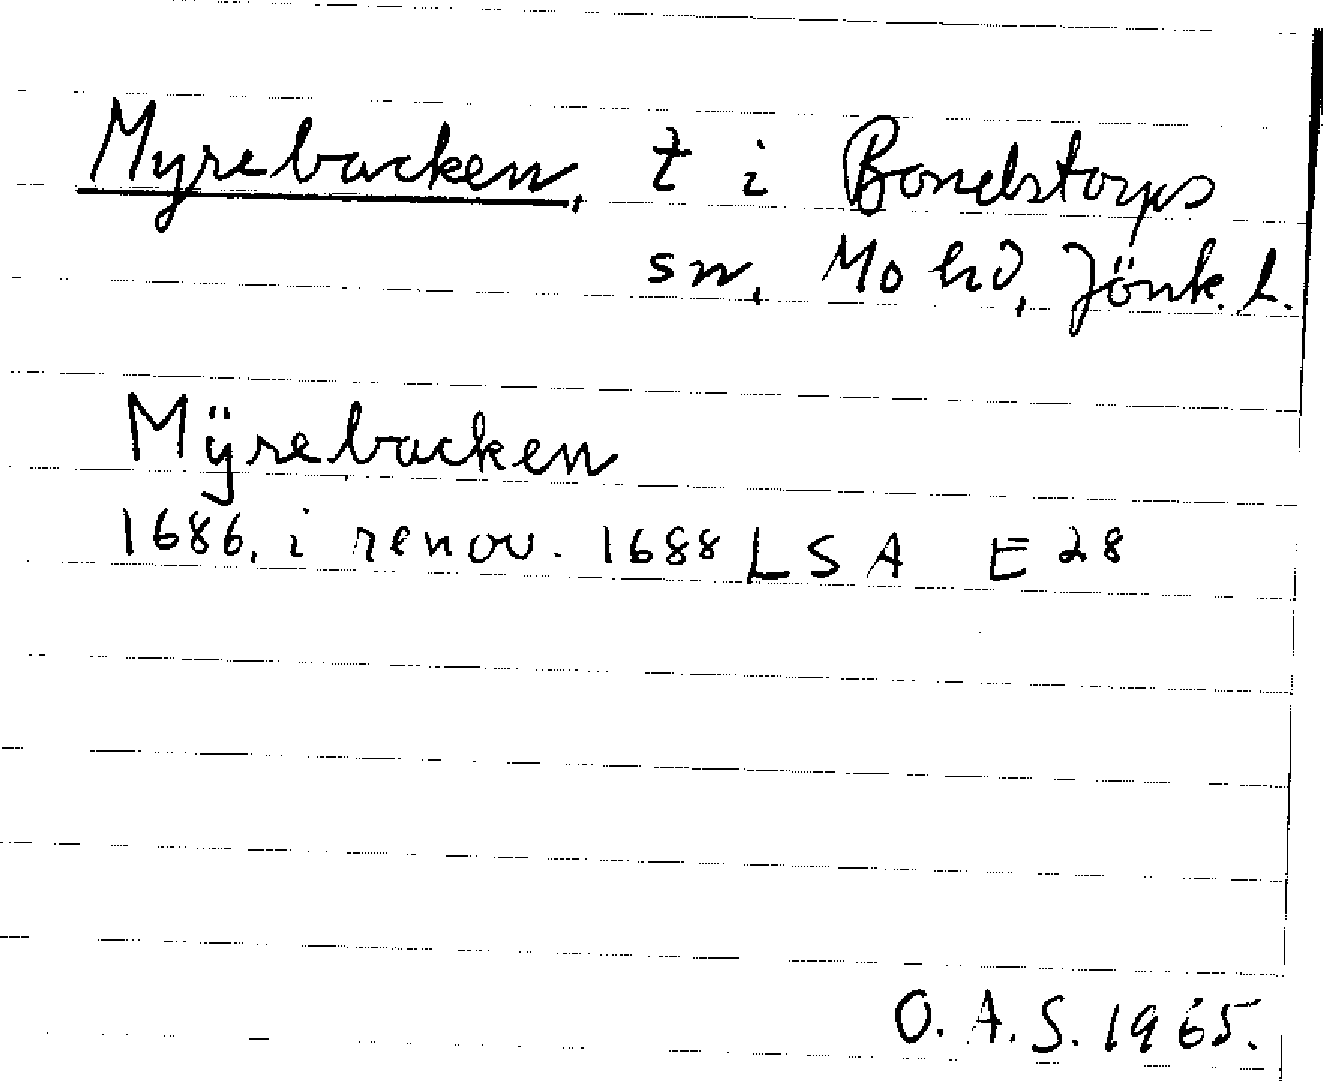 Myrebacken, t i Bondstorps
sn, Mo hd, Jönk. L.
Mÿrebacken
1686, i renov. 1688 LSA E 28
O. A. S. 1965.